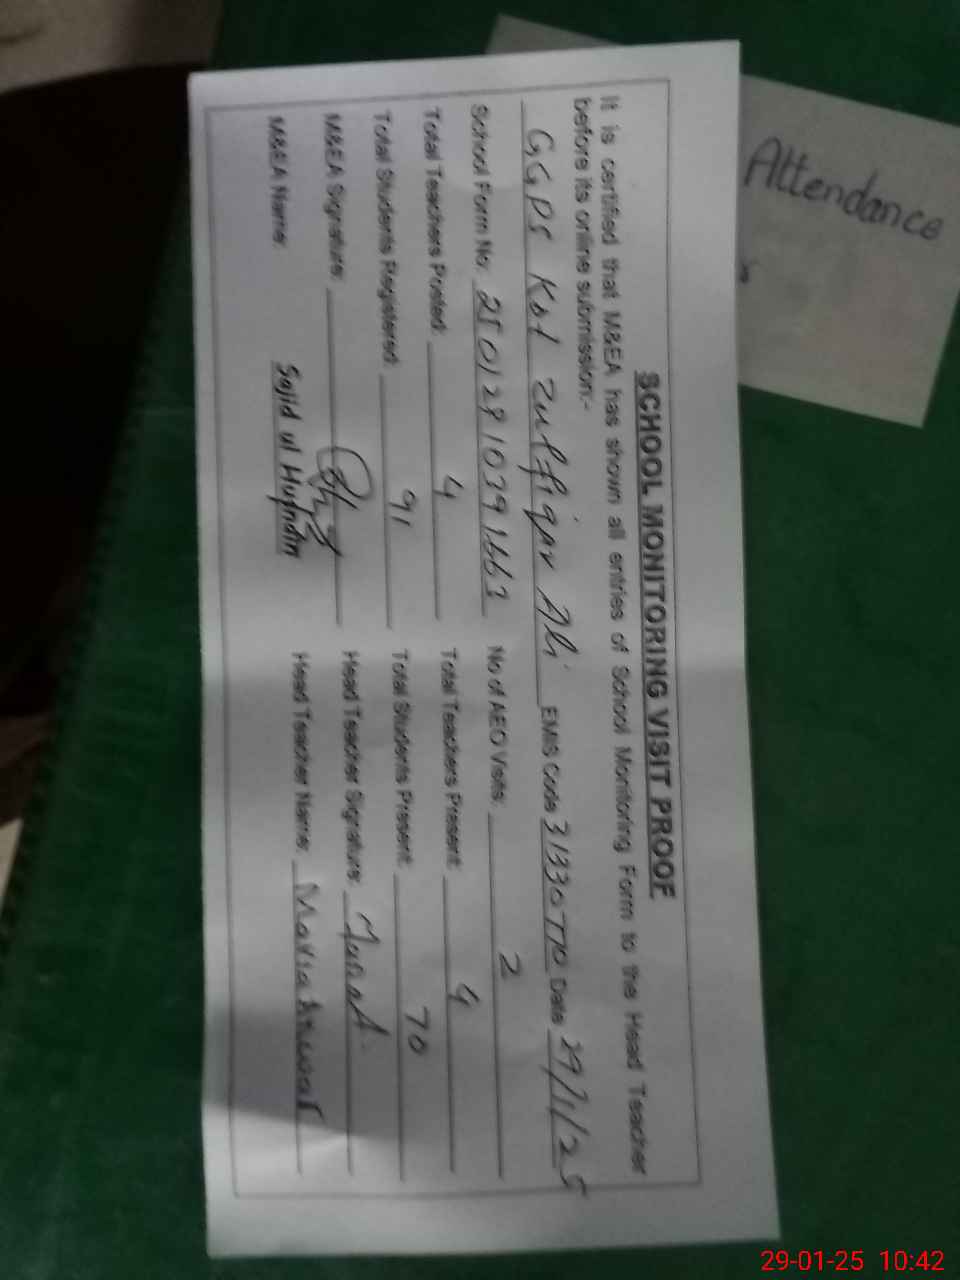 SCHOOL MONITORING VISIT PROOF
It is certified that M&EA has shown all entries of School Monitoring Form to the Head Teacher
before its online submission:-
GGPS Kot Zulfiqar Ali EMIS Code 31330770 Date 29/1/25
School Form No: No of AEO Visits: 2
Total Teachers Posted: 4 Total Teachers Present: 4
Total Students Registered: 91 Total Students Present: 70
M&EA Signature: Head Teacher Signature:
M&EA Name: Sajid ul Head Teacher Name: Maria Anwar
Attendance
29-01-25 10:42